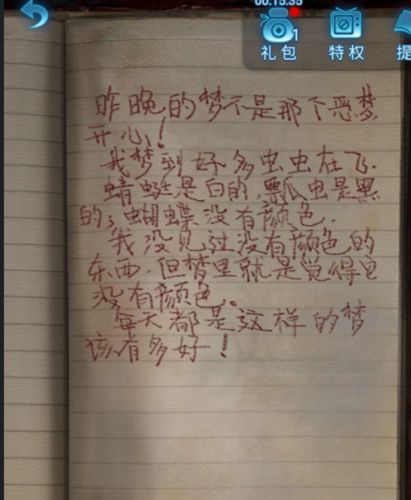 00:15:35
1
礼包 特权 提
昨晚的梦不是那个恶梦
开心!
我梦到好多虫虫在飞.
蜻蜓是白的,瓢瓜虫是黑
的;蝴蝶没有颜色.
我没见过没有颜色的
东西.但梦里就是觉得它
没有颜色。
每天都是这样的梦
该有多好!